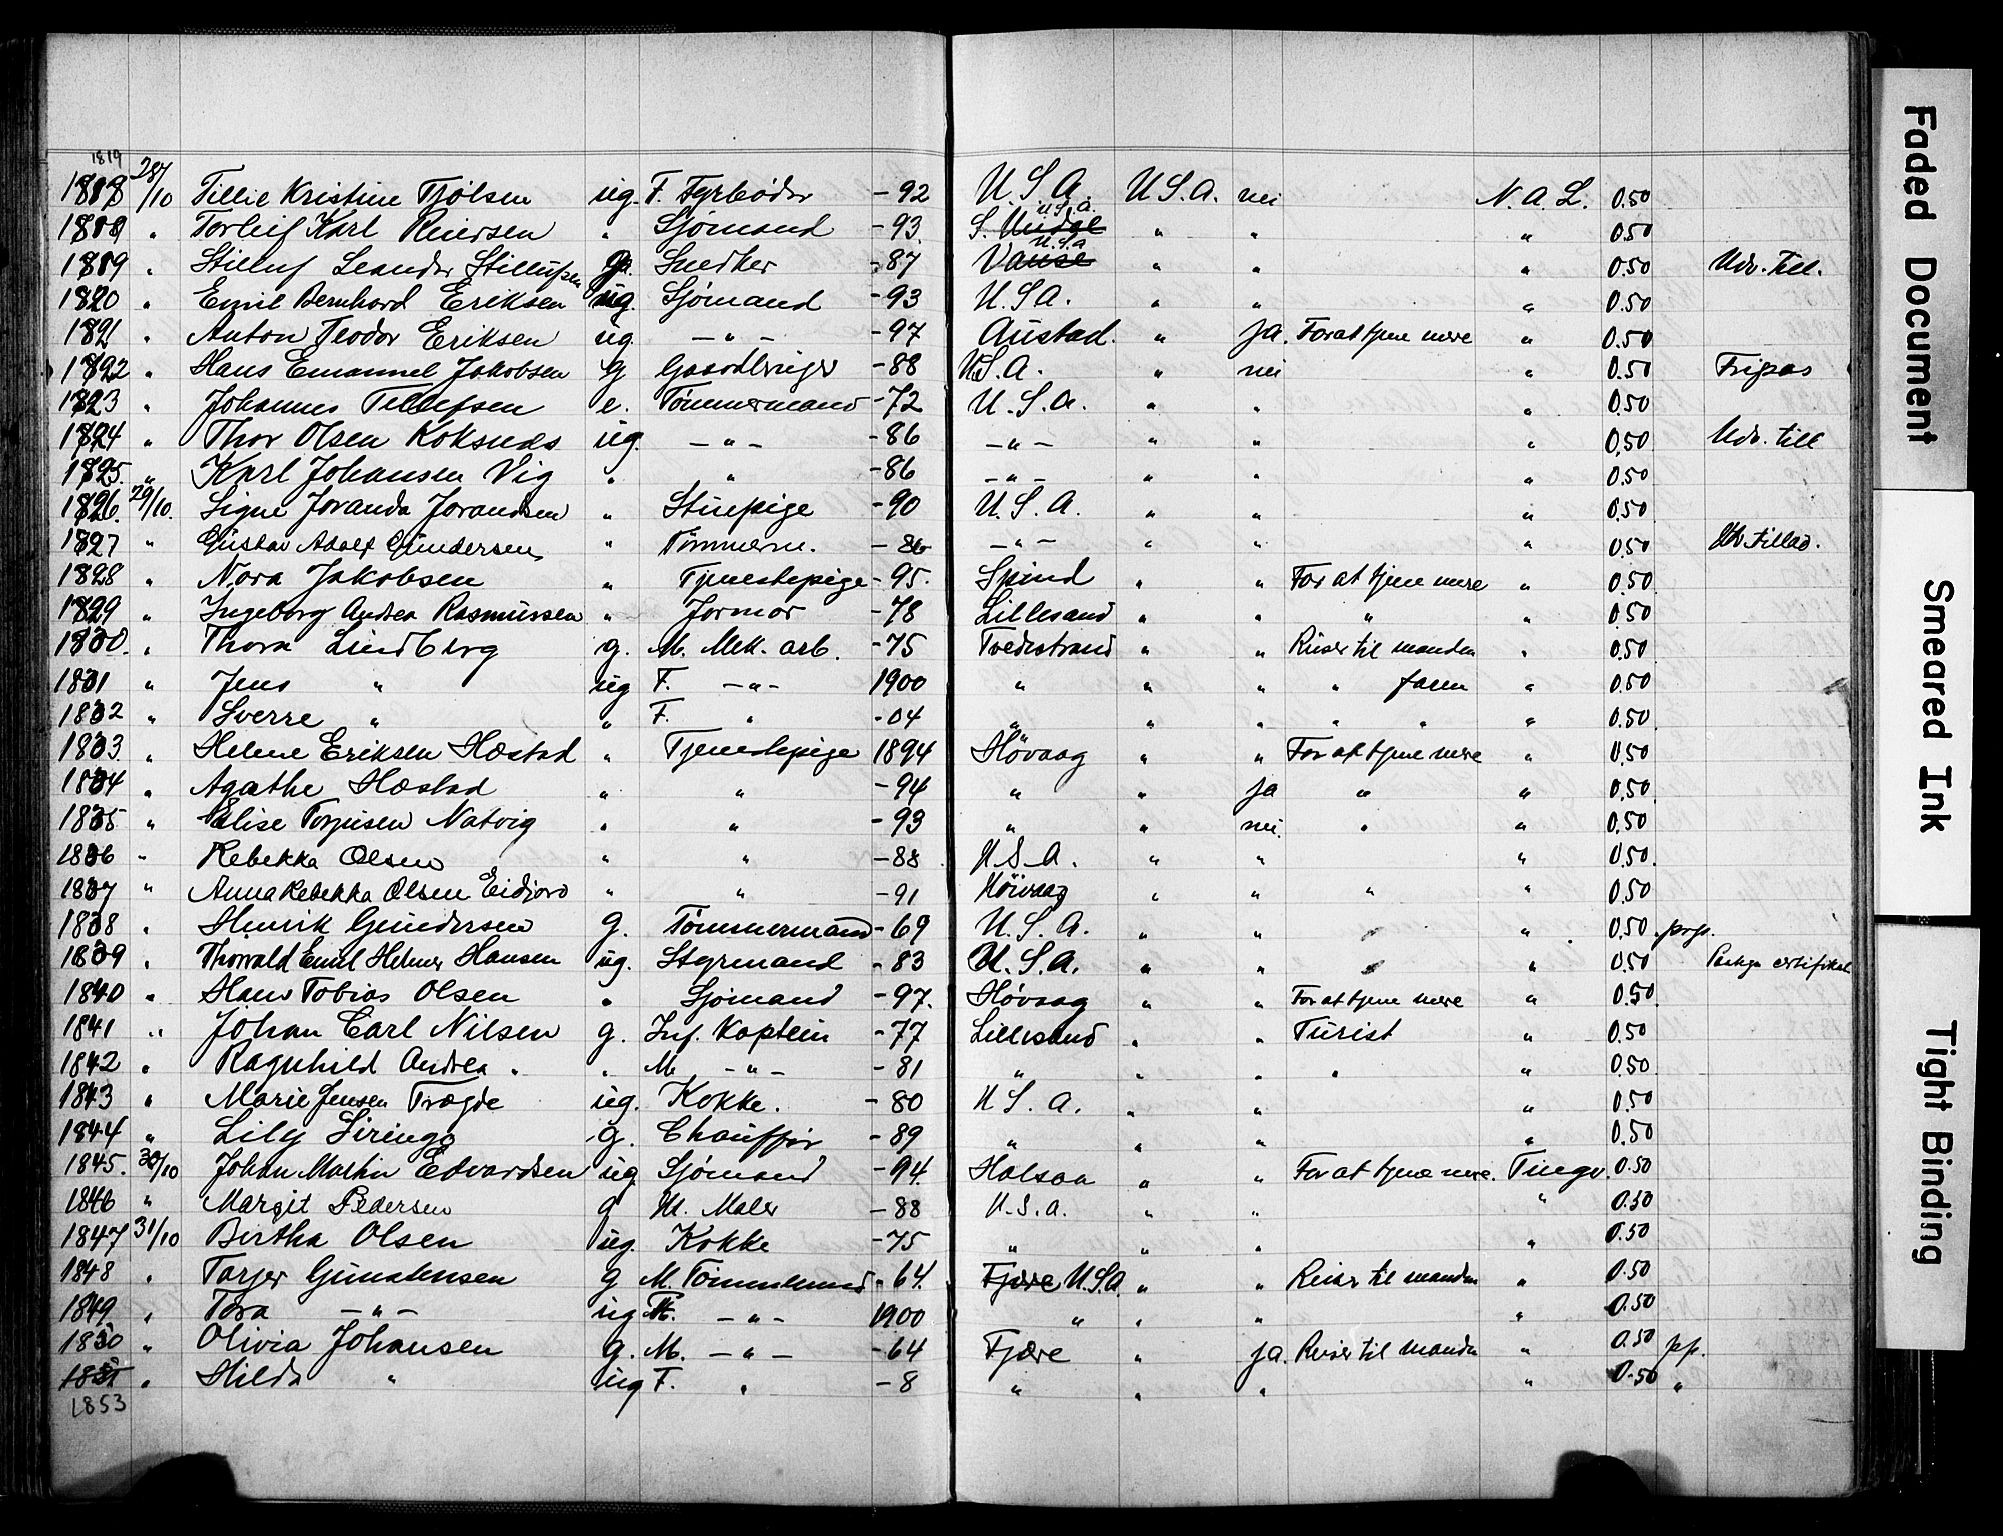 1819
1818 28/10 Tillie Kristine Tjölsen ug. F. Fyrbøder -92 U.S.A. U.S.A. nei N.A.L. 0.50
1819 " Torleif Karl Reiersen " Sjømand -93 S. Undal U.S.A. " " " 0.50
1819 " Stilluf Leander Stillufsen g. Snedker -87 Vanse U.S.a " " " 0.50 Udv. Till.
1820 " Emil Bernhard Eriksen ug. Sjømand -93 U.S.A. " " " 0.50
1821 " Anton Teodor Eriksen ug. -"- -97 Austad. " ja. For at tjene mere " 0.50
1822 " Hans Emanuel Jakobsen g Gaardbruger -88 U.S.A. " nei " 0.50 Fripas
1823 " Johannes Tellefsen e. Tömmermand -72 U.S.A. " " " 0.50
1824 " Thor Olsen ug. -"- -86 -"- " " " 0.50 Udv. till
1825. " Karl Johansen Vig " " -86 -"- " " " 0.50
1826. 29/10. Signe Joranda Jorandsen " Stuepige -90 U.S.A. " " " 0.50
1827 " Gustav Adolf Gundersen " Tömmerm. -86 -"- " " " 0.50 Udv. Tillad.
1828 " Nora Jakobsen " Tjenestepige -95. Spind " " For at tjene mere " 0.50
1829 " Ingeborg Andrea Rasmussen " Jormor -78 Lillesand " " " " 0.50
1830. " Thora Lindberg g. M. Mek. arb. -75 Tvedestrand " " Reiser til manden " 0.50
1831 " Jens " ug F. -"- 1900 " " " " faren " 0.50
1832 " Sverre " " F. " -04 " " " " " " 0.50
1833 " Helene Eriksen Hæstad " Tjenestepige 1894 Høvaag " " For at tjene mere " 0.50
1834 " Agathe Hæstad " " -94 " " ja " " 0.50
1835 " Elise Torjusen Natvig " " -93 " " nei. " " 0.50
1836 " Rebekka Olsen " " -88 U.S.A. " " " 0.50.
1837 " Anna Rebekka Olsen Eidjord " " -91 Höivaag " " " " 0.50
1838 " Henrik Gundersen g. Tömmermand -69 U.S.A. " " " 0.50 prp.
1839 " Thorvald Emil Helmer Hansen ug. Styrmand -83 U.S.A. " " " 0.50
1840 " Hans Tobias Olsen " Sjømand -97. Høvaag " " For at tjene mere " 0.50.
1841 " Johan Carl Nilsen g. Inf. Kaptein -77 Lillesand " " Turist " 0.50
1842 " Ragnhild Andrea " " M. -"- -81 " " " " " 0.50.
1843 " Marie Jensen Trægde ug. Kokke. -80 U.S.A. " " " 0.50
1844 " Lily Siringo g. Chauffør -89 " " " " 0.50
1845. 30/10 Johan Martin Edvardsen ug Sjømand -94. Halsaa " " For at tjene mere. Tingv. 0.50
1846 " Margit Pedersen g M. Maler -88 U.S.a. " " " 0.50
1847 31/10 Bertha Olsen ug. Kokke -75 " " " " 0.50
1848 " Tarjer Gunstensen g M. Tömmermand -64. Fjære U.S.A. " " Reiser til manden " 0.50
1849 " Tora -"- ug F. -"- 1900 " " " " 0.50
1850 " Olivia Johansen g. M. -"- -64 Fjære " ja. Reiser til manden " 0.50 pp.
1851 " Hilda " ug F. " -8 " " " 0.50 "
1853
Faded Document
Smeared Ink
Tight Binding